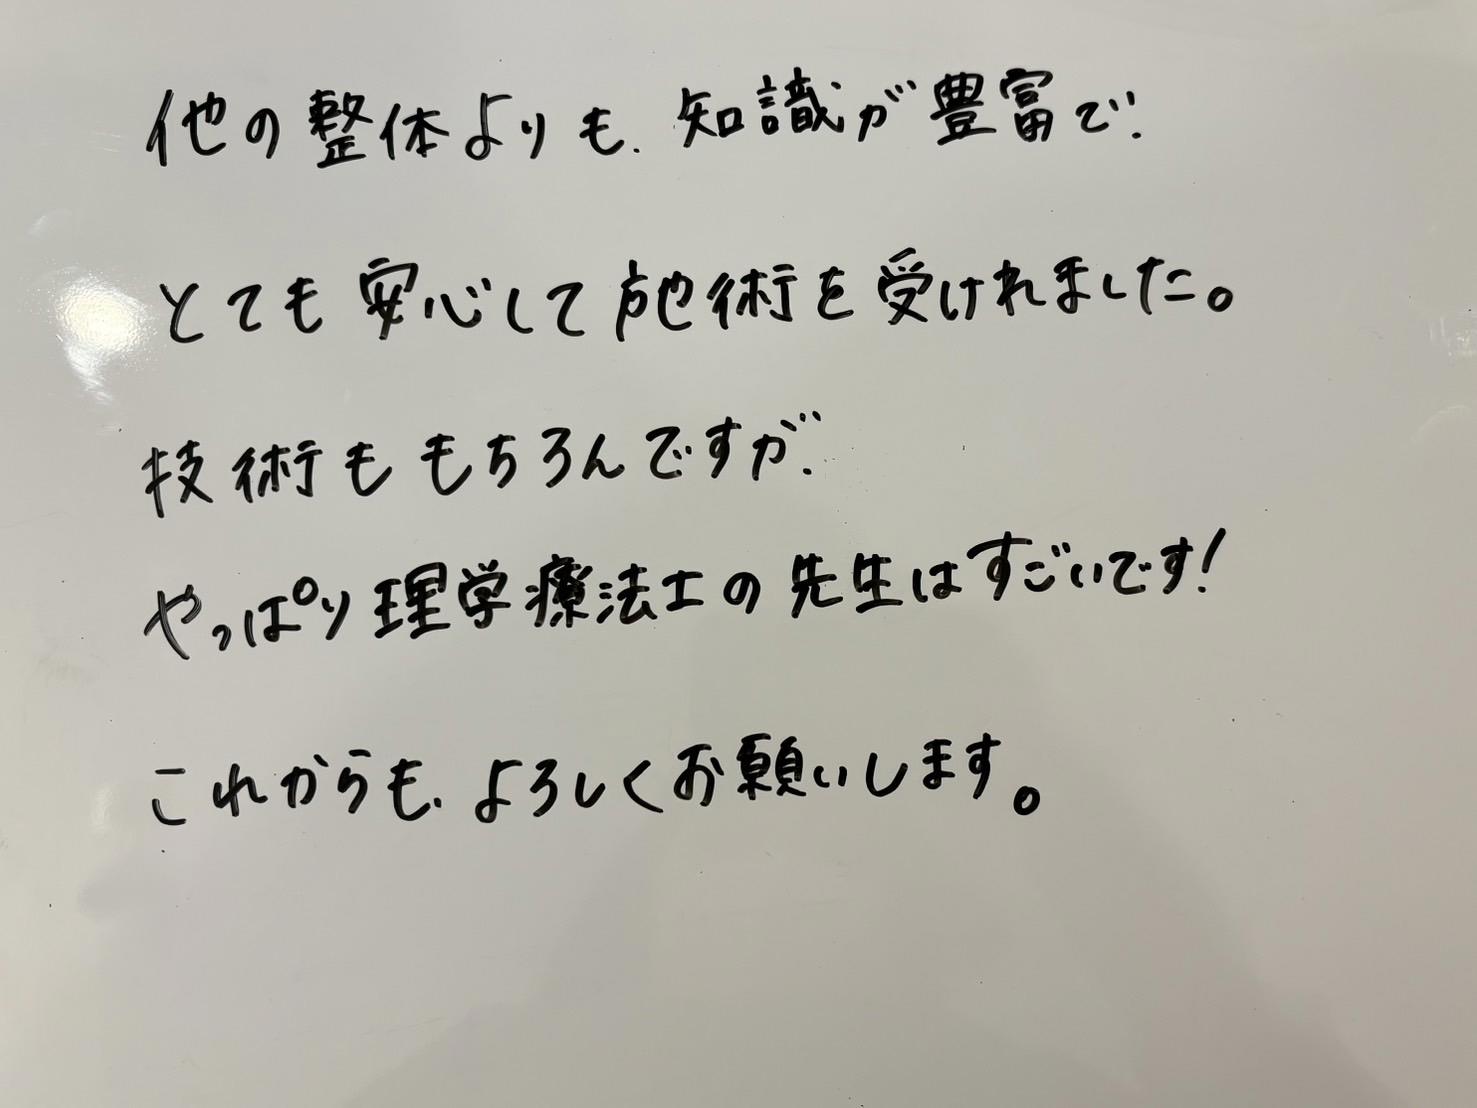 他の整体よりも、知識が豊富で、
とても安心して施術を受けれました。
技術ももちろんですが、
やっぱり理学療法士の先生はすごいです!
これからも、よろしくお願いします。